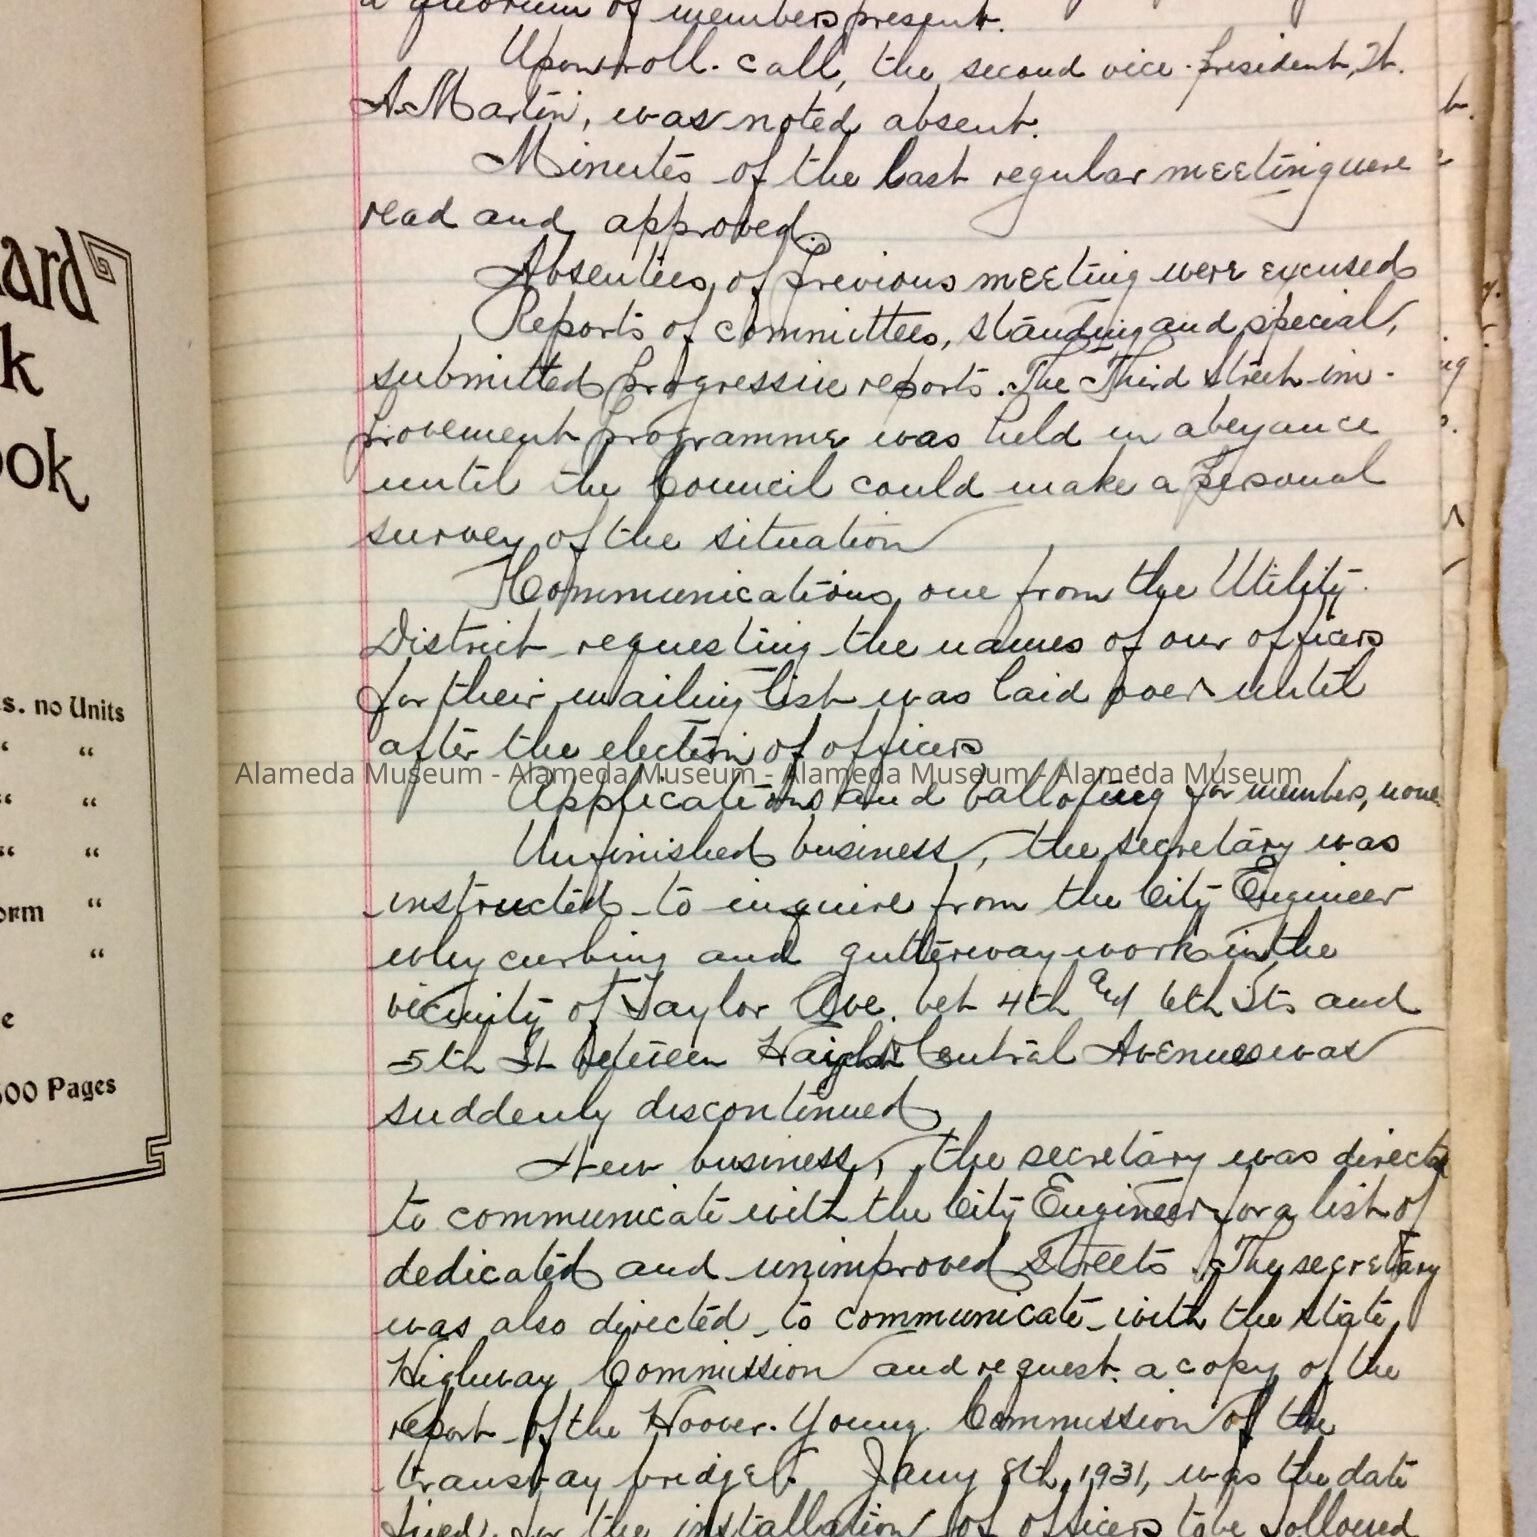 a quorum of members present.
Upon roll-call, the second vice-president, H.
A. Martin, was noted absent.
Minutes of the last regular meeting were
read and approved.
Absentees of previous meeting were excused
Reports of committees, standing and special,
submitted progressive reports. The Third Street im-
provement programme was held in abeyance
until the Council could make a personal
survey of the situation
Communications, one from the Utility
District requesting the names of our officers
for their mailing list was laid over until
after the election of officers
Alameda Museum - Alameda Museum - Alameda Museum - Alameda Museum
Applications and balloting for members, none
Unfinished business, the secretary was
instructed to inquire from the City Engineer
why curbing and gutterway work in the
vicinity of Taylor Ave. bet 4th and 6th Sts and
5th St between Haight & Central Avenues was
suddenly discontinued
New business, the secretary was directed
to communicate with the City Engineer for a list of
dedicated and unimproved streets. The secretary
was also directed to communicate with the State
Highway Commission and request a copy of the
report of the Hoover-Young Commission of the
transbay bridge. Jany 8th, 1931, was the date
fixed for the installation of officers to be followed
ard
k
ook
s. no Units
“ “
“ “
“ “
orm “
“
e
500 Pages